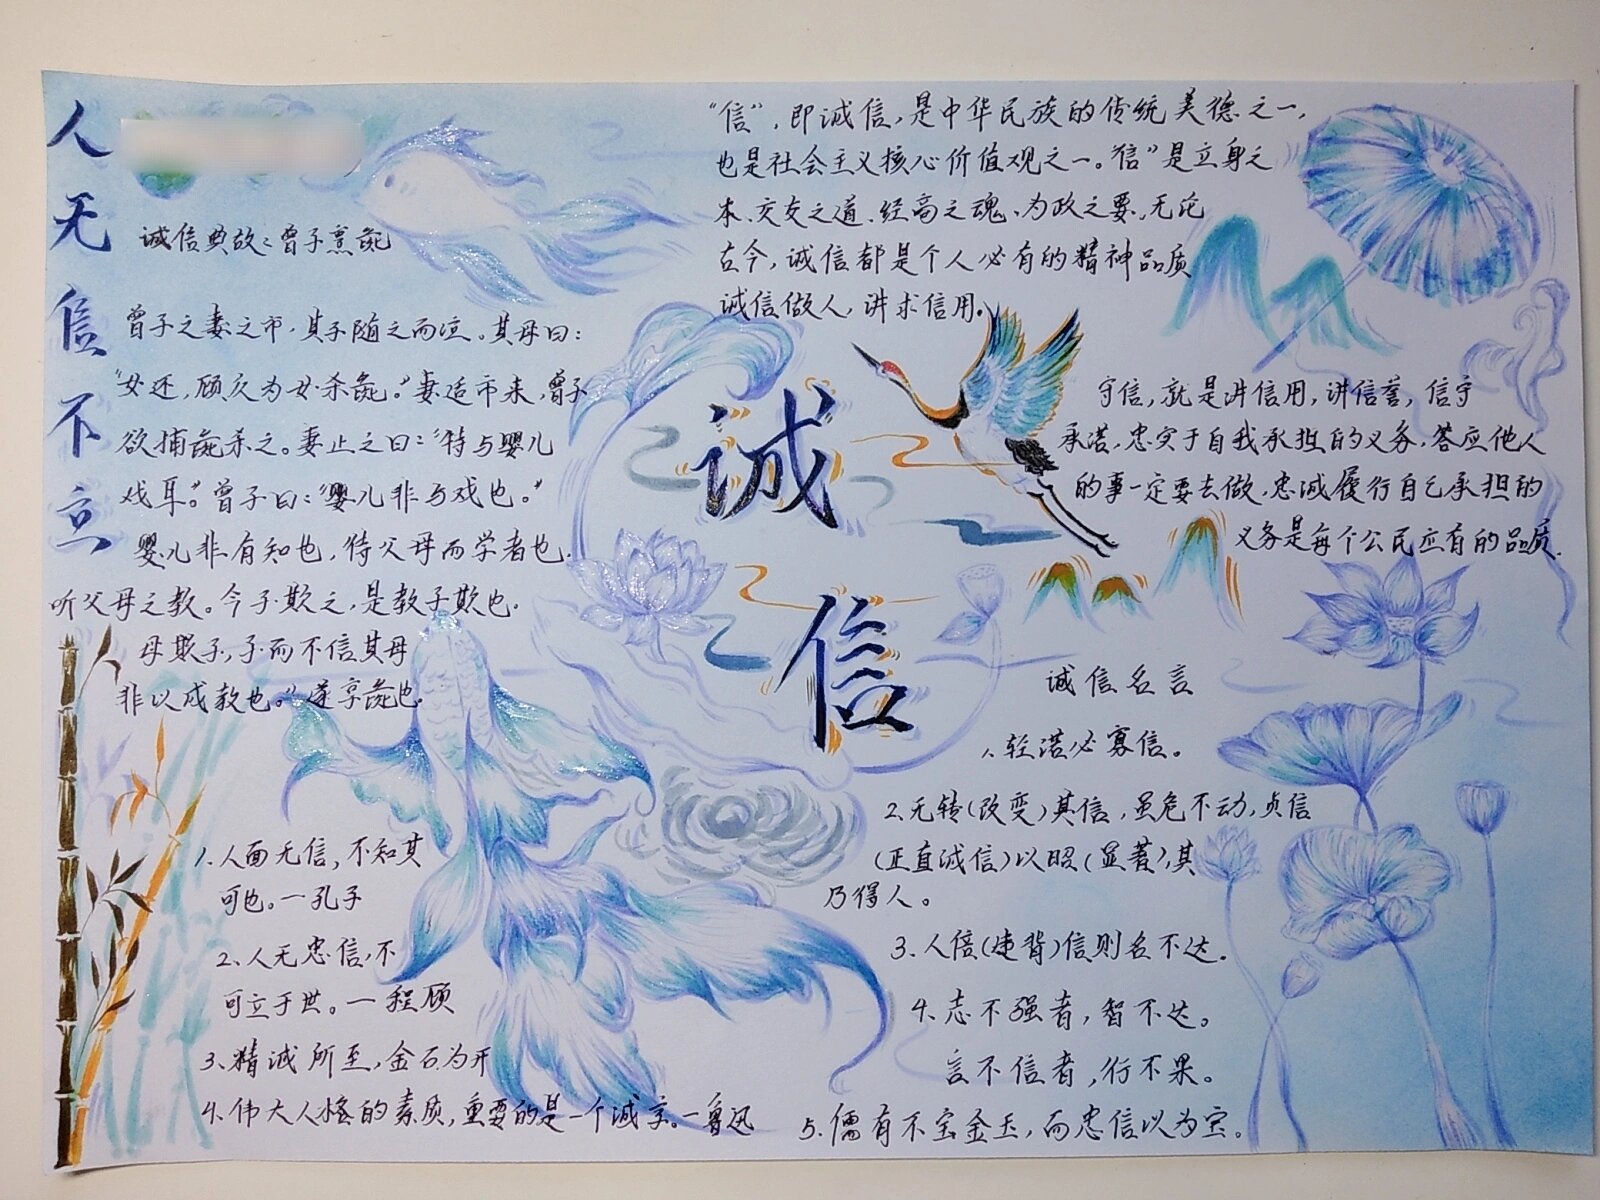 人无信不立
诚信典故:曾子烹彘
曾子之妻之市,其子随之而泣。其母曰:
"女还,顾反为女杀彘。"妻适市来,曾子
欲捕彘杀之。妻止之曰:"特与婴儿
戏耳。"曾子曰:"婴儿非与戏也。"
婴儿非有知也,待父母而学者也.
听父母之教。今子欺之,是教子欺也.
母欺子,子而不信其母
非以成教也。"遂烹彘也.
1.人而无信,不知其
可也。一孔子
2、人无忠信,不
可立于世。一程颐
3、精诚所至,金石为开
4.伟大人格的素质,重要的是一个诚字。一鲁迅
诚
信
"信",即诚信,是中华民族的传统美德之一,
也是社会主义核心价值观之一。"信"是立身之
本、交友之道、经商之魂、为政之要,无论
古今,诚信都是个人必有的精神品质
诚信做人,讲求信用。
守信,就是讲信用,讲信誉,信守
承诺,忠实于自我承担的义务,答应他人
的事一定要去做,忠诚履行自己承担的
义务是每个公民应有的品质.
诚信名言
1.轻诺必寡信。
2.无转(改变)其信,虽危不动,贞信
(正直诚信)以昭(显著),其
乃得人。
3.人倍(违背)信则名不达.
4.志不强者,智不达。
言不信者,行不果。
5.儒有不宝金玉,而忠信以为宝。